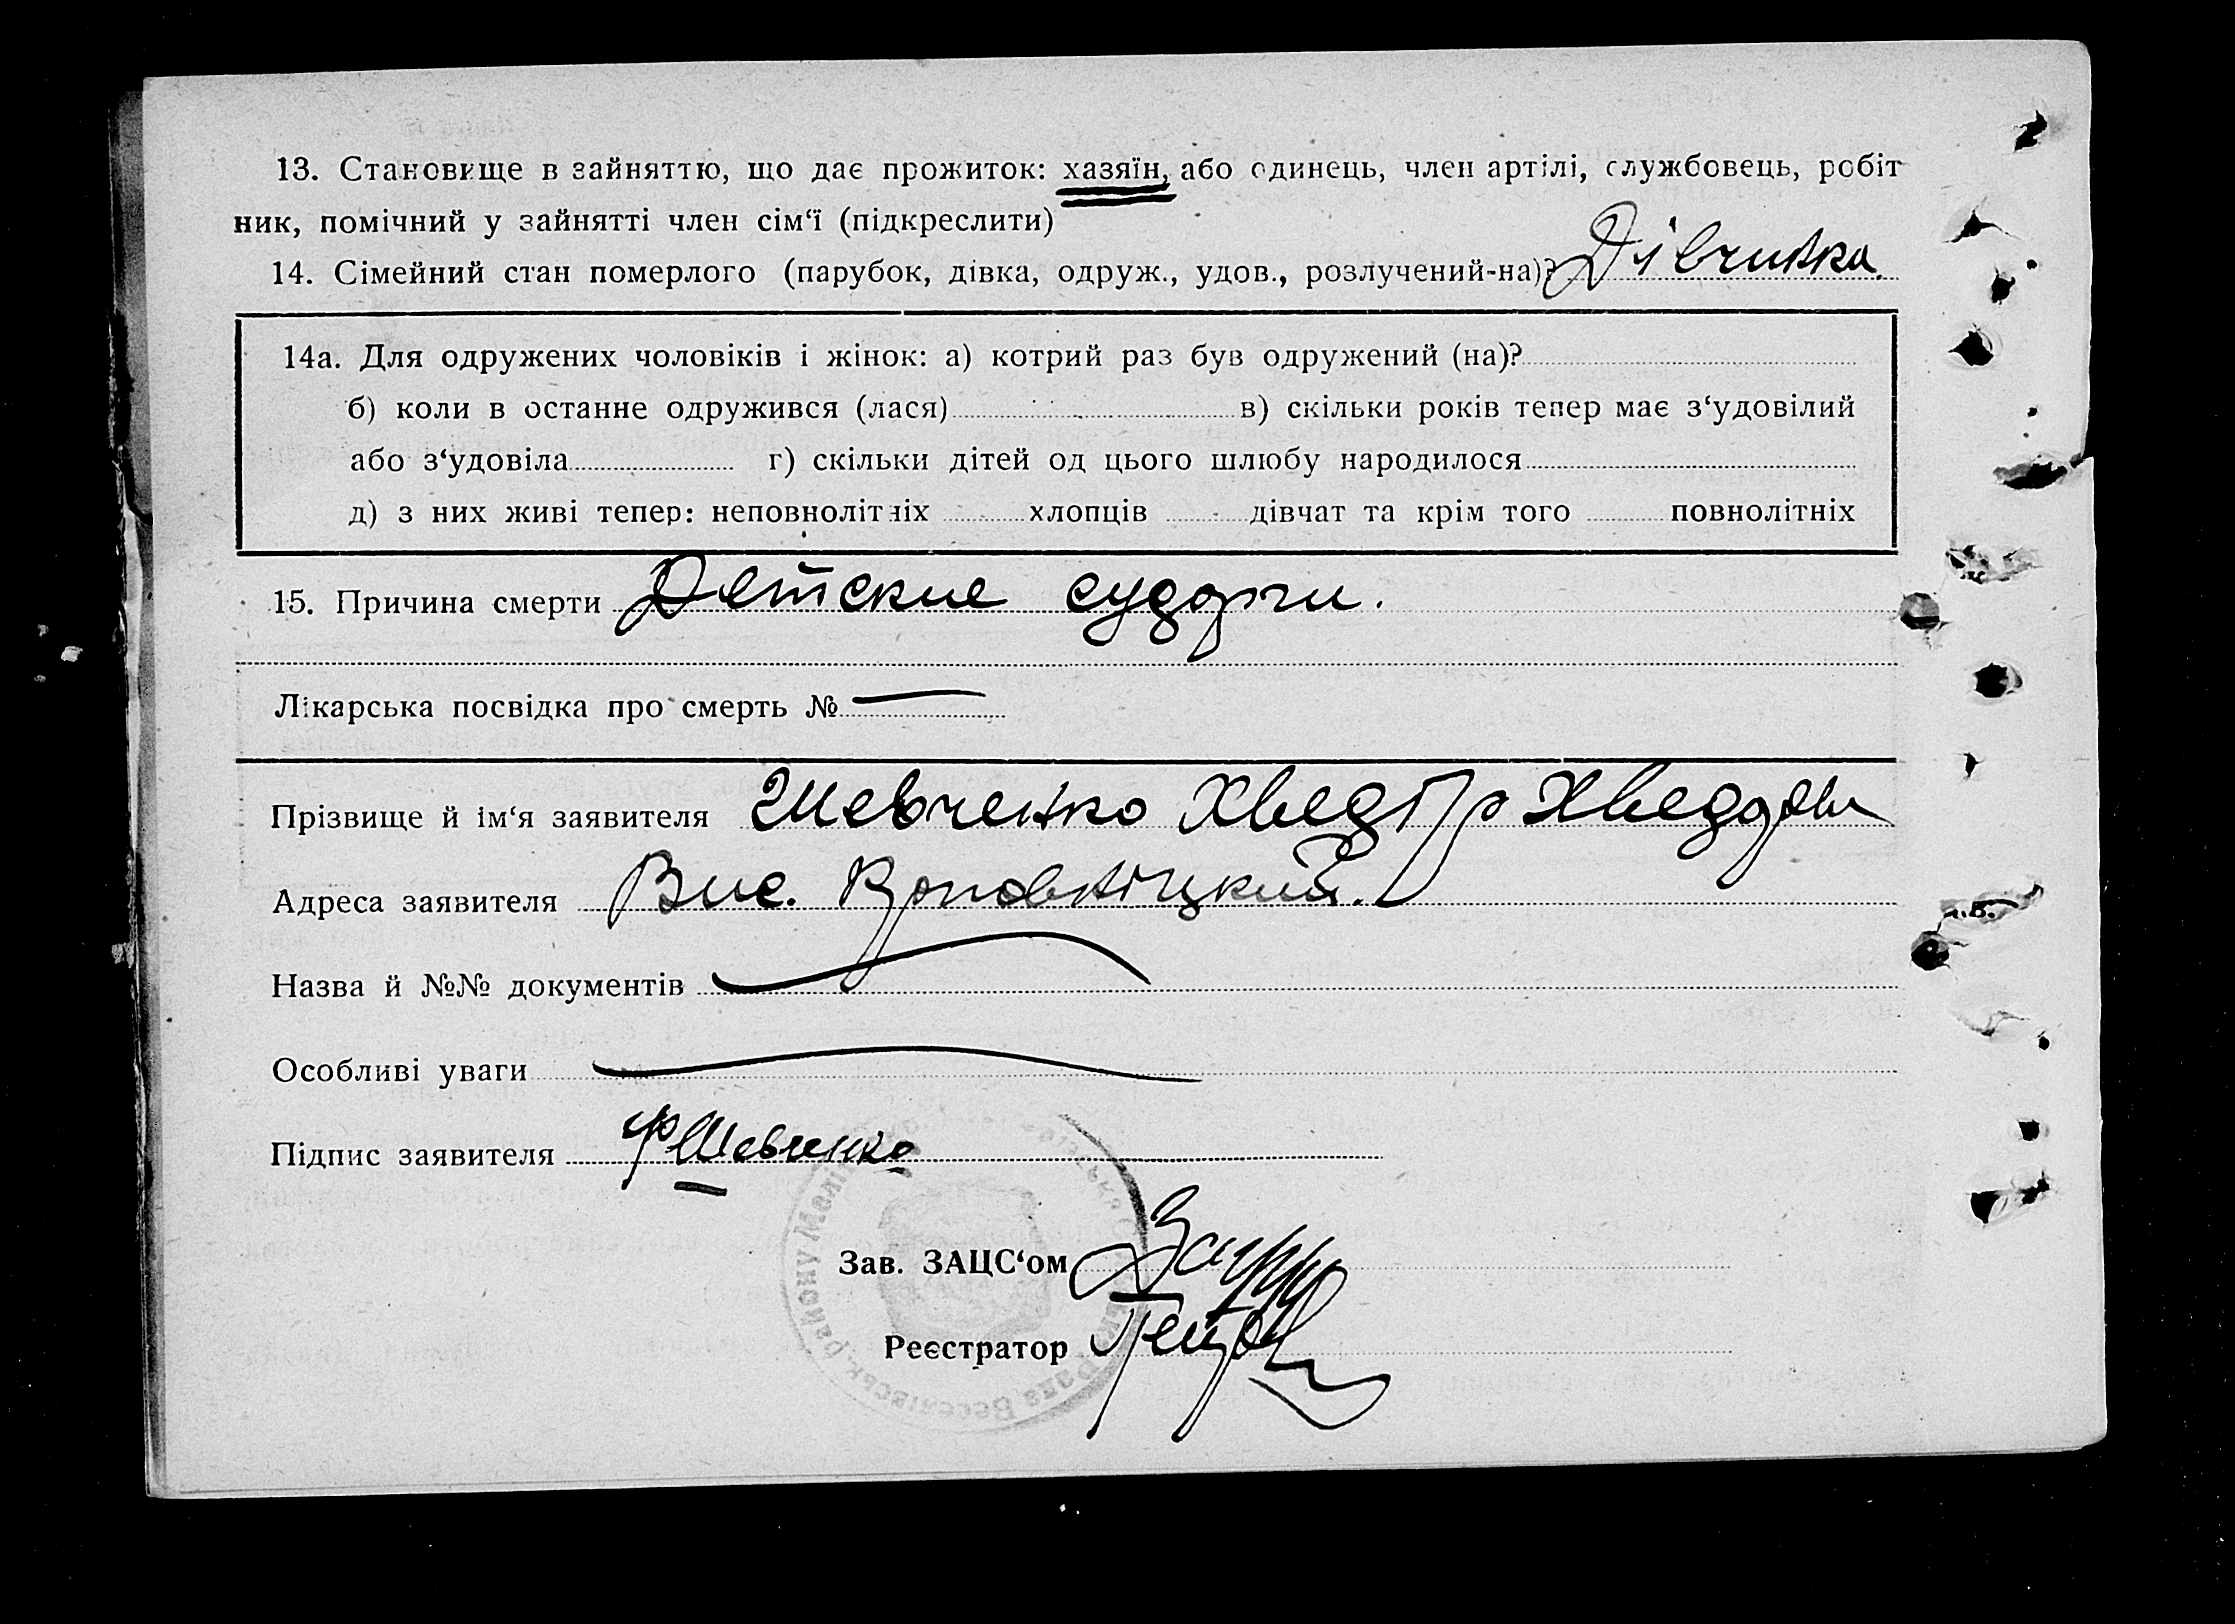 13. Становище в зайняттю, що дає прожиток: хазяїн, або одинець, член артілі, службовець, робіт
ник, помічний у зайнятті член сім‘ї (підкреслити)
14. Сімейний стан померлого (парубок, дівка, одруж., удов., розлучений-на)? Дівчинка.
14а. Для одружених чоловіків і жінок: а) котрий раз був одружений (на)?
б) коли в останне одружився (лася) в) скільки років тепер має з‘удовілий
або з‘удовіла г) скільки дітей од цього шлюбу народилося
д) з них живі тепер: неповнолітніх хлопців дівчат та крім того повнолітніх
15. Причина смерти Детские судорги.
Лікарська посвідка про смерть № —
Прізвище й ім‘я заявителя Шевченко Хведір
Адреса заявителя Вис.
Назва й №№ документів
Особливі уваги
Підпис заявителя Ф Шевченко
Зав. ЗАЦС‘ом
Реєстратор
району Мелі